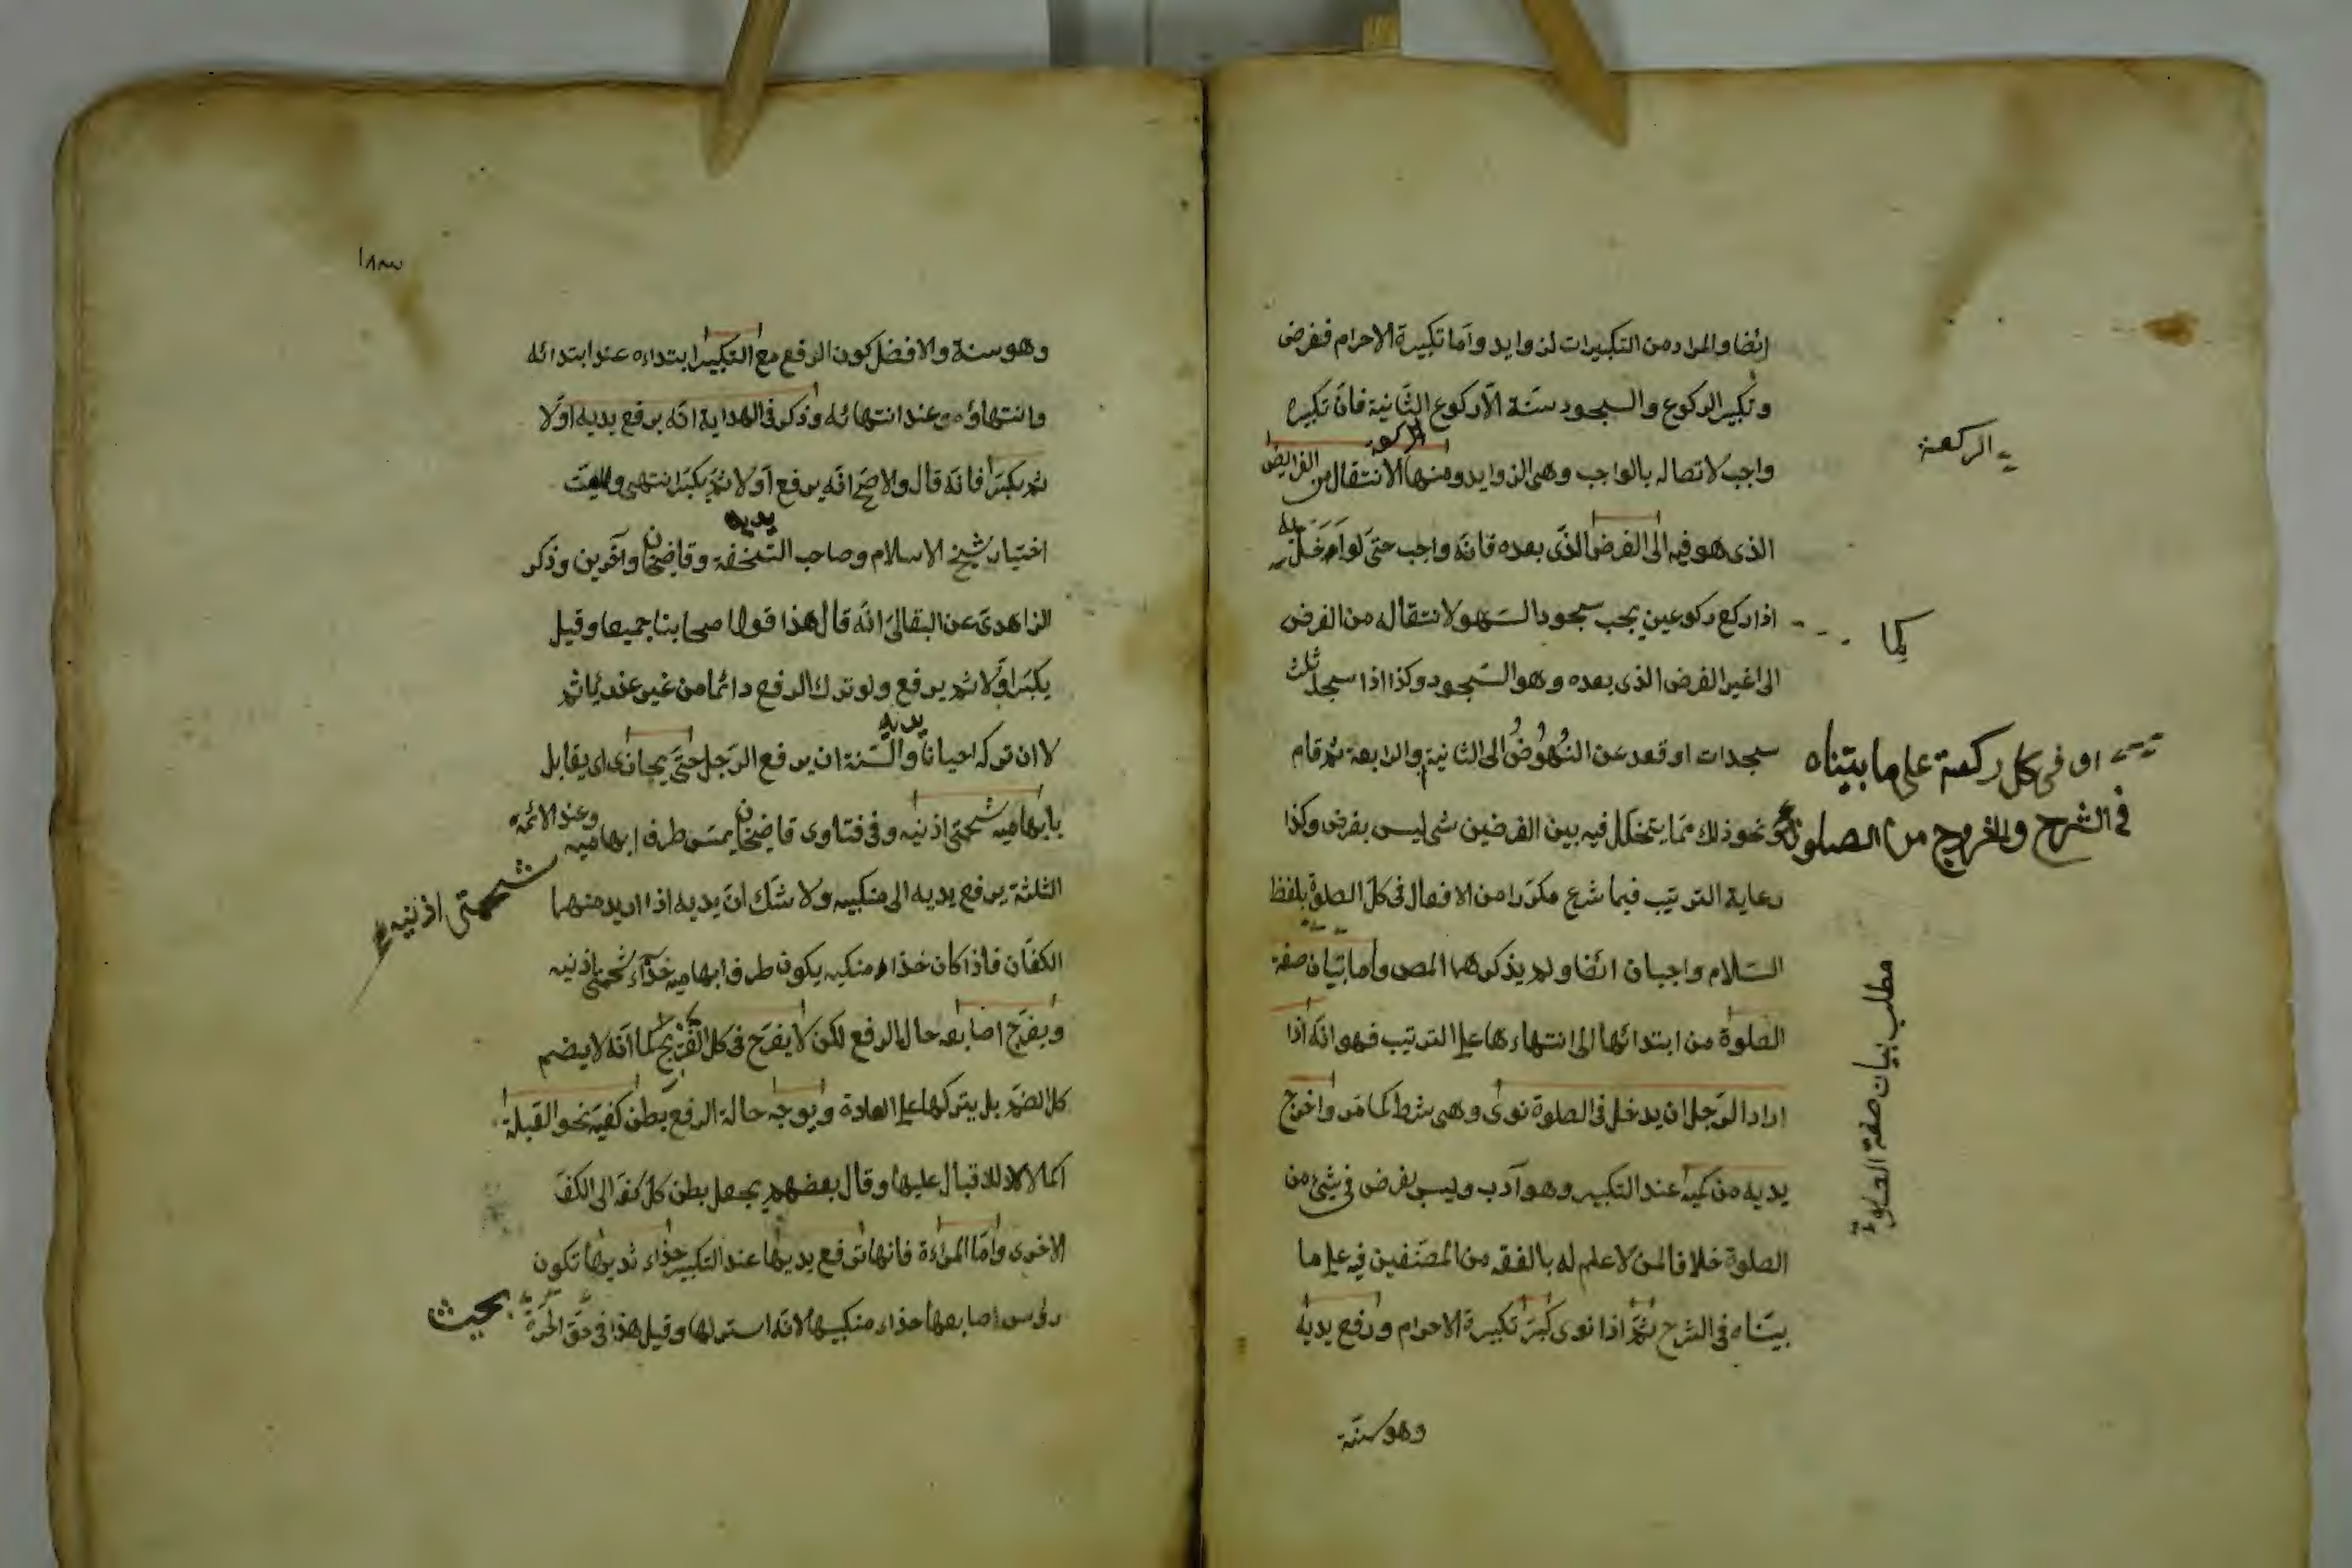 ايضا والمراد من التكبيرات لزوايد واما تكبيرة الاحرام ففرض
وتكبير الركوع والسجود سنة الا ركوع الثانية فان تكبيره
الركعة
واجب لاتصاله بالواجب وهى الزوايد ومنها الانتقال من الفرايض
الركعة
الذى هو فيه الى الفرض الذى بعده فانه واجب حتى لو
اذا ركع ركوعين يجب سجود السهو لانتقاله من الفرض
كما
الى غير الفرض الذى بعده وهو السجود وكذا اذا سجد ثلث
سجدات او قعد عن النهوض الى الثانية والرابعة ثم قام
او فى كل ركعة على ما بيناه
فى الشرح والخروج من الصلوة
ونحو ذلك مما يتخلل فيه بين الفرضين شى ليس بفرض وكذا
رعاية الترتيب فيما شرع مكررا من الافعال فى كل الصلوة بلفظ
السلام واجبان ايضا ولم يذكرهما المص واما بيان صفة
الصلوة من ابتدائها الى انتهاءها على الترتيب فهو انه اذا
مطلب بيان صفة الصلوة
اراد الرجل ان يدخل فى الصلوة نوى وهى شرط كما مر واخرج
يديه من كميه عند التكبير وهو آدب وليس بفرض فى شئ من
الصلوة خلافا لمن لا علم له بالفقه من المصنفين فيه على ما
بيناه فى الشرح ثم اذا نوى كبر تكبيرة الاحرام ورفع يديه
وهو سنة
وهو سنة والافضل كون الرفع مع التكبير ابتداءه عند ابتدائه
وانتهاؤه عند انتهائه وذكر فى الهداية انه يرفع يديه اولا
ثم يكبر فانه قال والاصح انه يرفع اولا ثم يكبر انتهى
يديه
اختيار شيخ الاسلام وصاحب التحفة وقاضيخان وآخرين وذكر
الزاهدى عن البقالى انه قال هذا قول اصحابنا جميعا وقيل
يكبر اولا ثم يرفع ولو ترك الرفع دائما من غير عذر ياثم
لا ان تركه احيانا والسنة ان يرفع الرجل يديه حتى يحاذى اى يقابل
بابهاميه شحمتى اذنيه وفى فتاوى قاضيخان يمس طرف ابهاميه وعند الائمة
شحمتى اذنيه
الثلثة يرفع يديه الى منكبيه ولا شك ان يديه اذا اريد منهما
الكفان فاذا كان حذاء منكبيه يكون طرف ابهاميه حذاء شحمتى اذنيه
ويفرج اصابعه حال الرفع لكن لا يفرج فى كل التفريج كما انه لا يضم
كل الضم بل يتركها على العادة ويوجه حالة الرفع بطن كفيه نحو القبلة
اكمالا للاقبال عليها وقال بعضهم يجعل بطن كل كف الى الكف
الاخرى واما المراءة فانها ترفع يديها عند التكبير حذاء ثدييها تكون
بحيث
رؤس اصابعها حذاء منكبيها لانه استر لها وقيل هذا فى حق الحرة